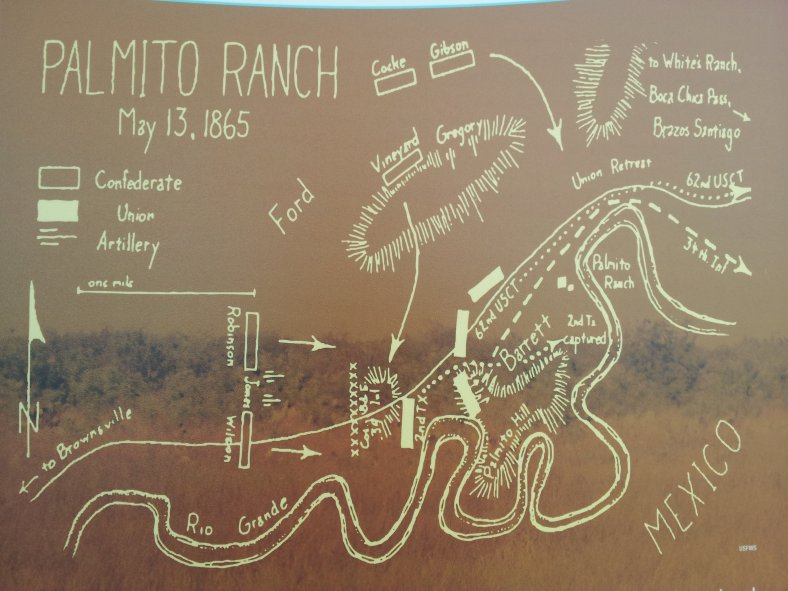 PALMITO RANCH
May 13, 1865
Confederate
Union
Artillery
one mile
N
Cocke
Gibson
Vineyard
Gregory
Ford
to White's Ranch,
Boca Chica Pass,
Brazos Santiago
Union Retreat
62nd USCT
34th Inf
Palmito
Ranch
62nd USCT
Barrett
2nd Tx
captured
Robinson
Jones
Wilson
2nd TX
Palmito Hill
to Brownsville
Rio Grande
MEXICO
USFWS